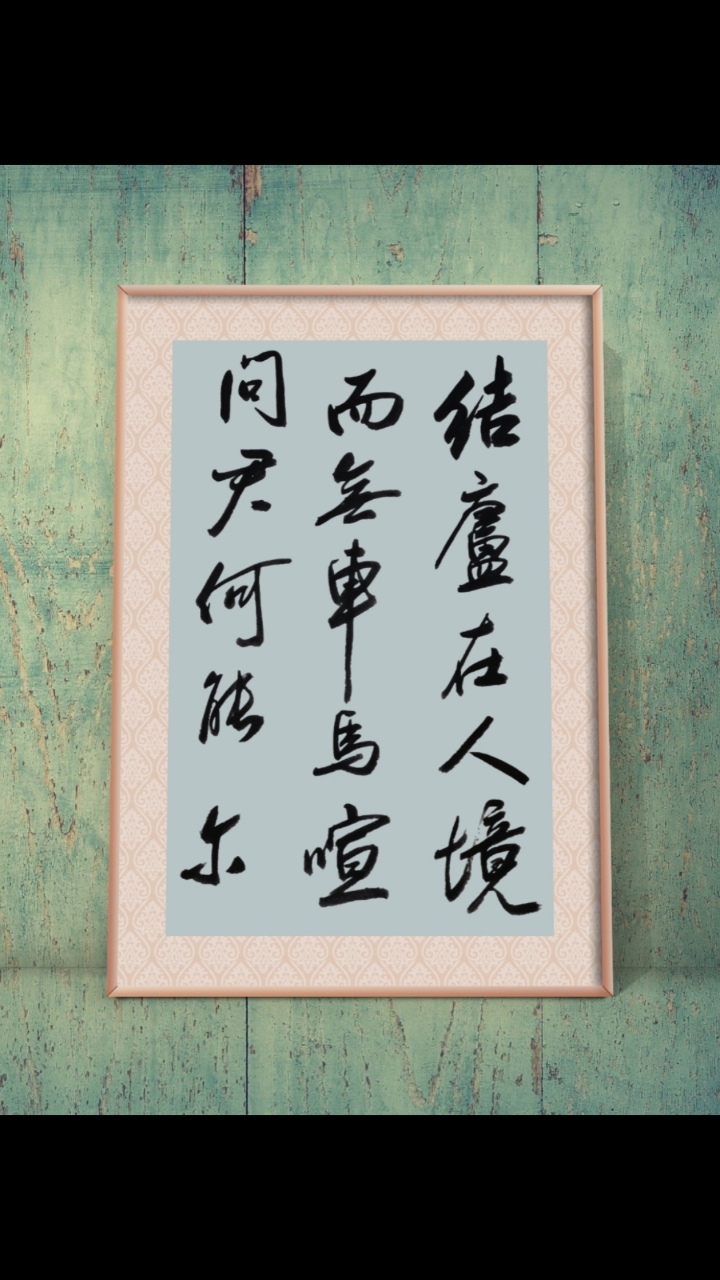 结廬在人境
而無車馬喧
问君何能尔